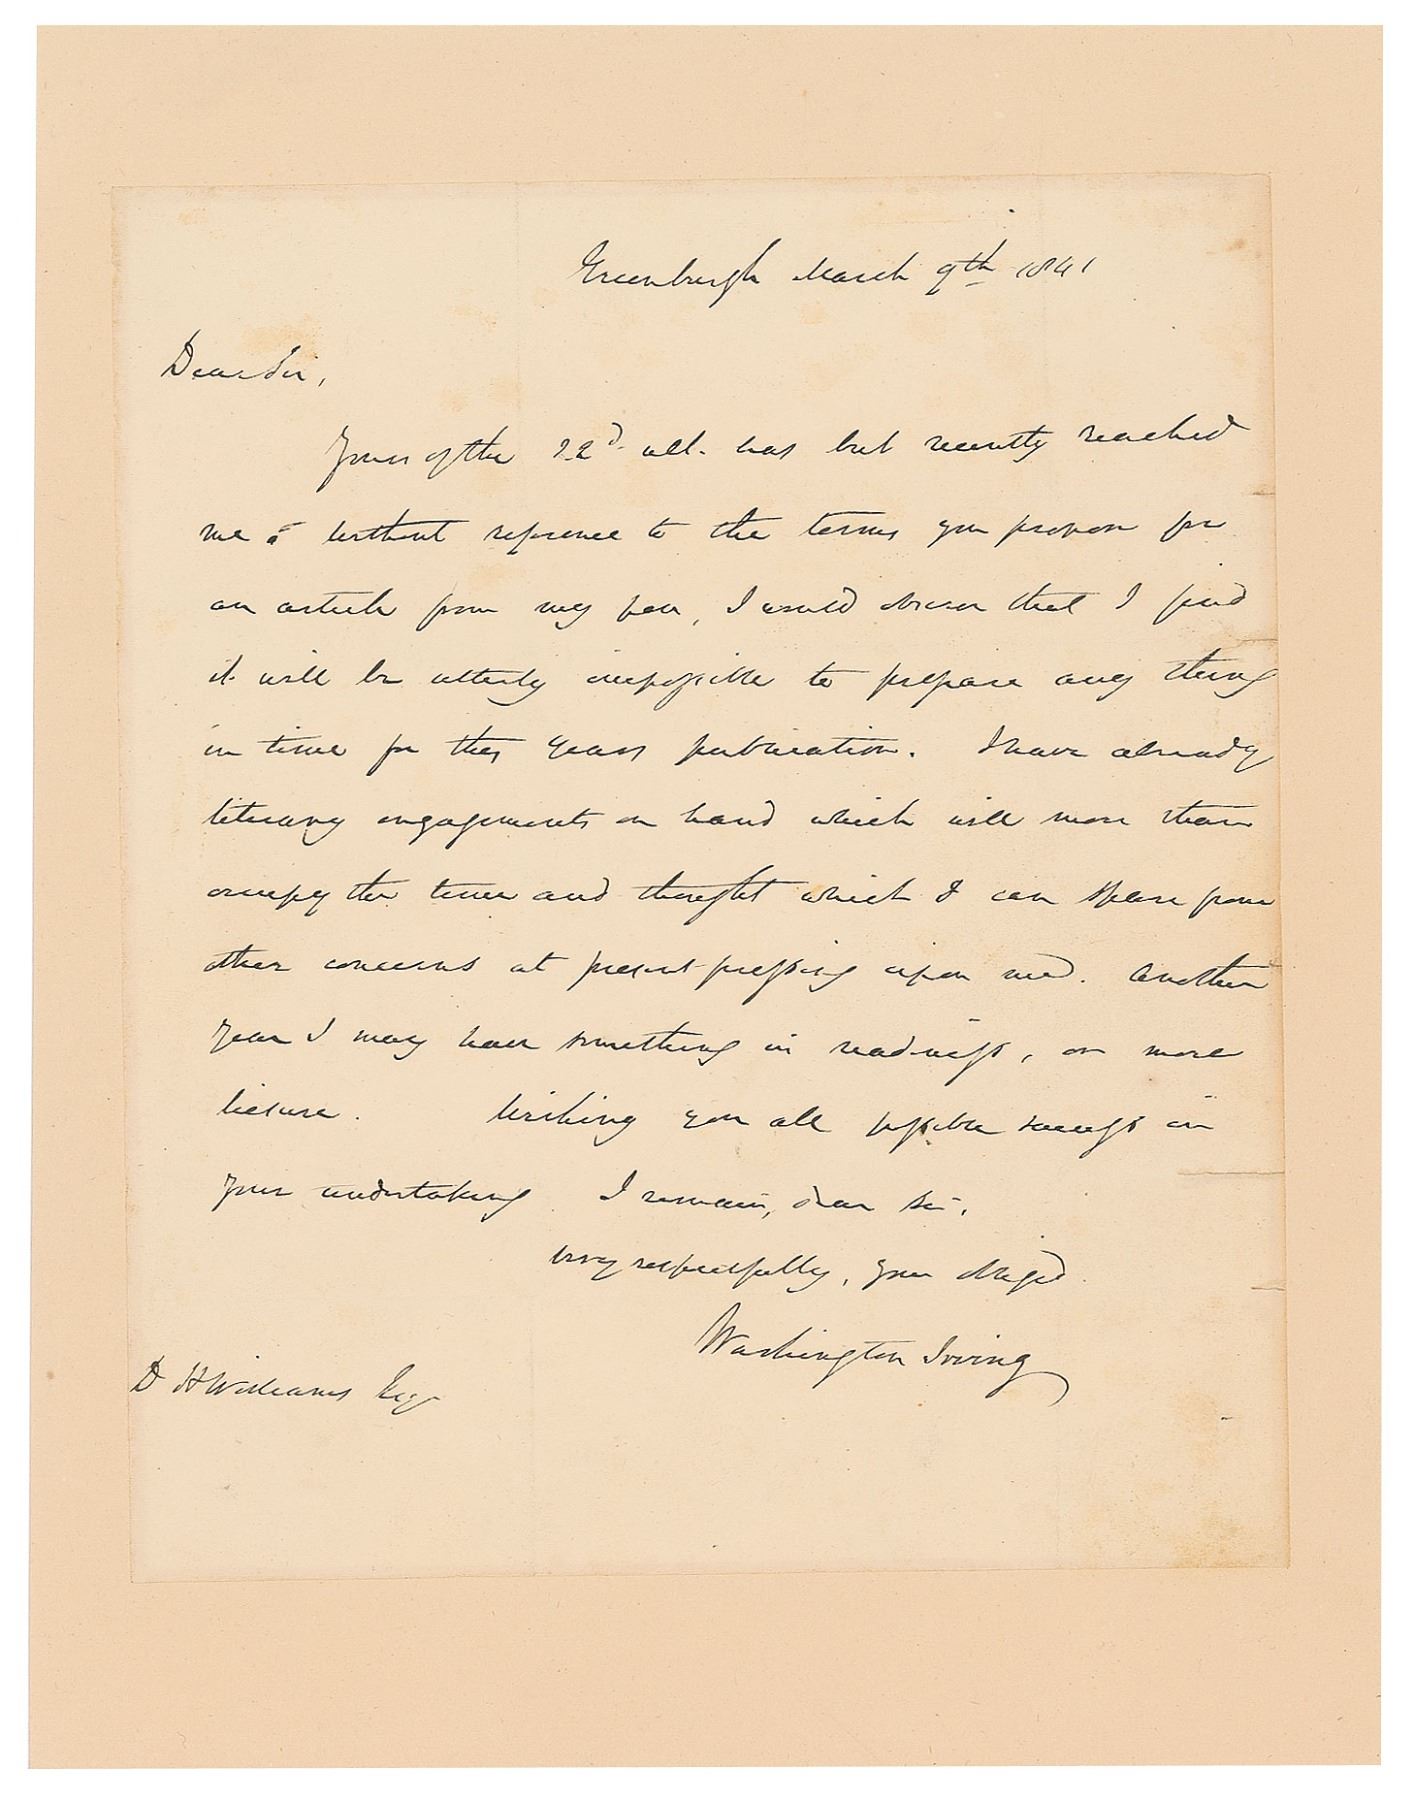 Greenburgh March 9th 1841
Dear Sir,
Yours of the 22d. ult. has but recently reached
me & without reference to the terms you propose for
an article from my pen, I would observe that I find
it will be utterly impossible to prepare any thing
in time for this years publication. I have already
literary engagements on hand which will more than
occupy the time and thought which I can spare from
other concerns at present pressing upon me. Another
year I may have something in readiness, or more
leisure. Wishing you all possible success in
your undertaking I remain, dear sir,
very respectfully, your obliged
Washington Irving
D H Williams Esqr